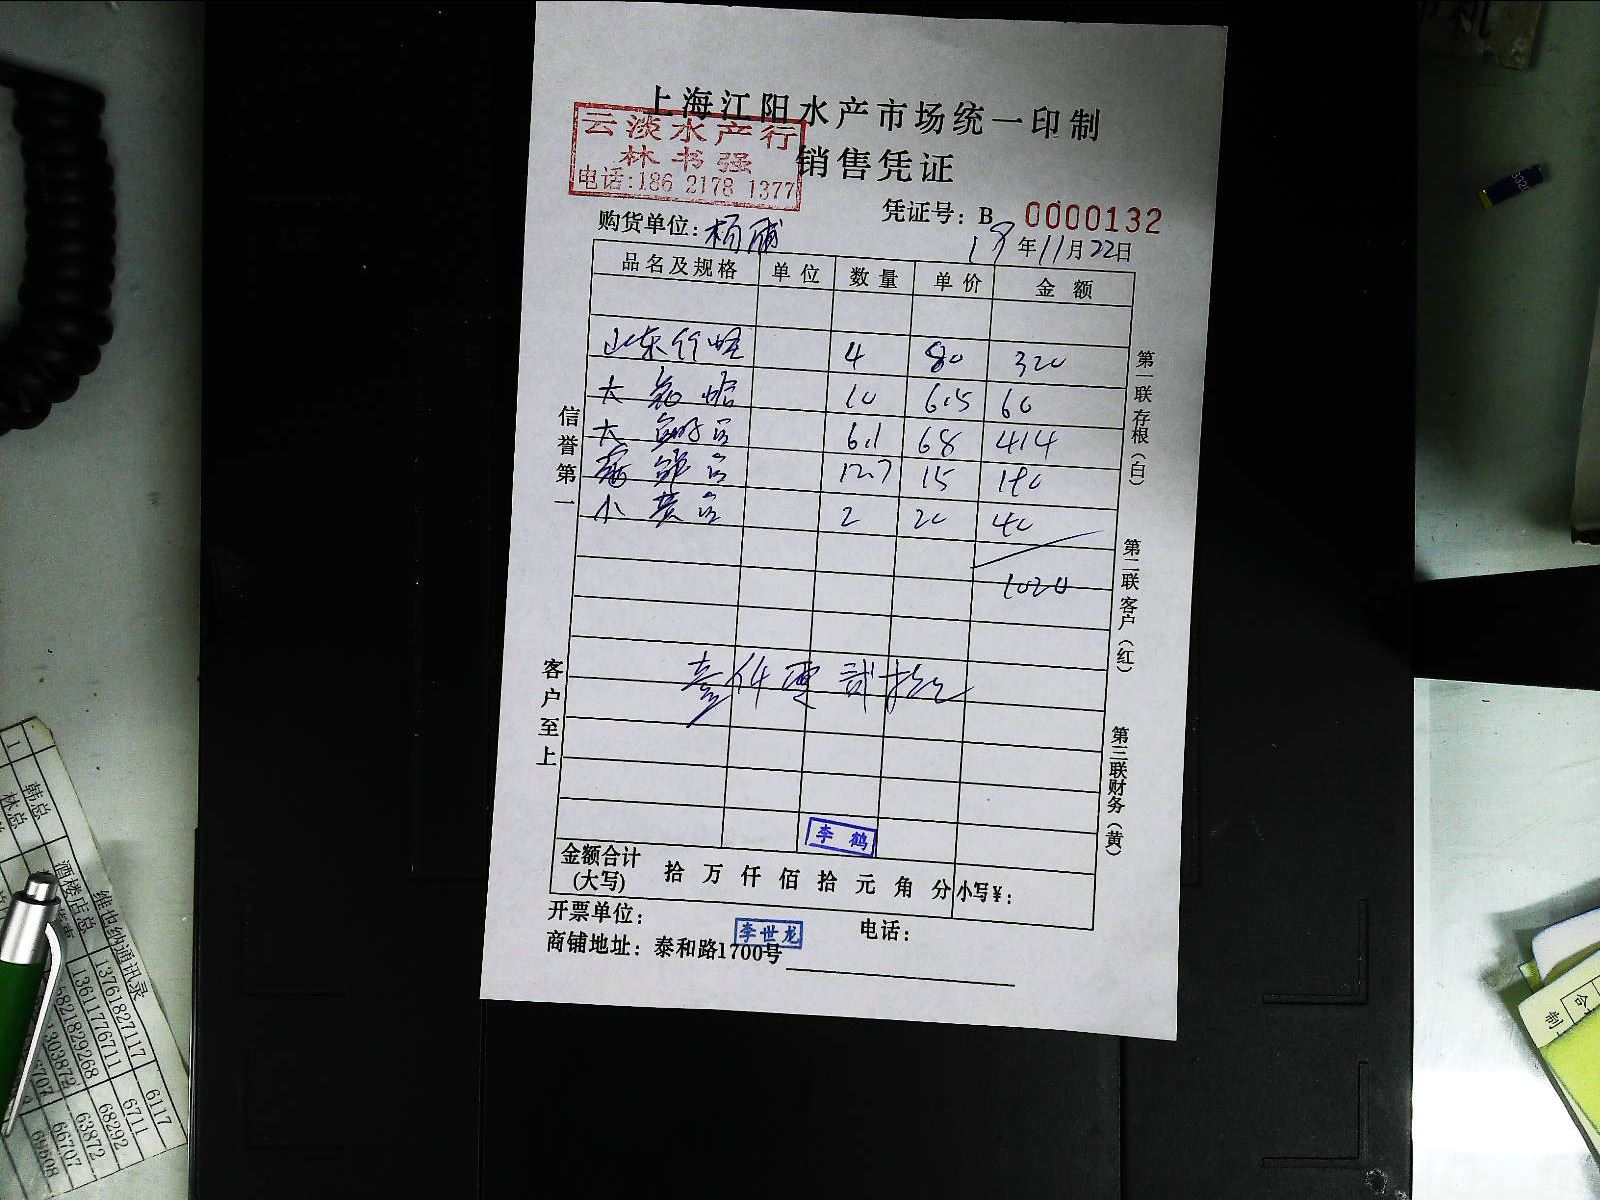 上海江阳水产市场统一印制
云淡水产行
林书强
电话:186 2178 1377
销售凭证
凭证号: B 0000132
购货单位: 杨浦
18年11月22日
品名及规格 单位 数量 单价 金额
山东竹蛏 4 80 320
大 蛤 10 6.5 60
大 6.1 68 414
12.7 15 190
小黄 2 20 40
1024
壹仟零贰拾元
信誉第一
客户至上
第一联存根(白)
第二联客户(红)
第三联财务(黄)
李鹤
金额合计
(大写) 拾 万 仟 佰 拾 元 角 分 小写¥:
开票单位:
电话:
李世龙
商铺地址: 泰和路1700号
维也纳通讯录
韩总 13761827117 6117
林总 13611776711 6711
酒楼店总
68292
63872
66707